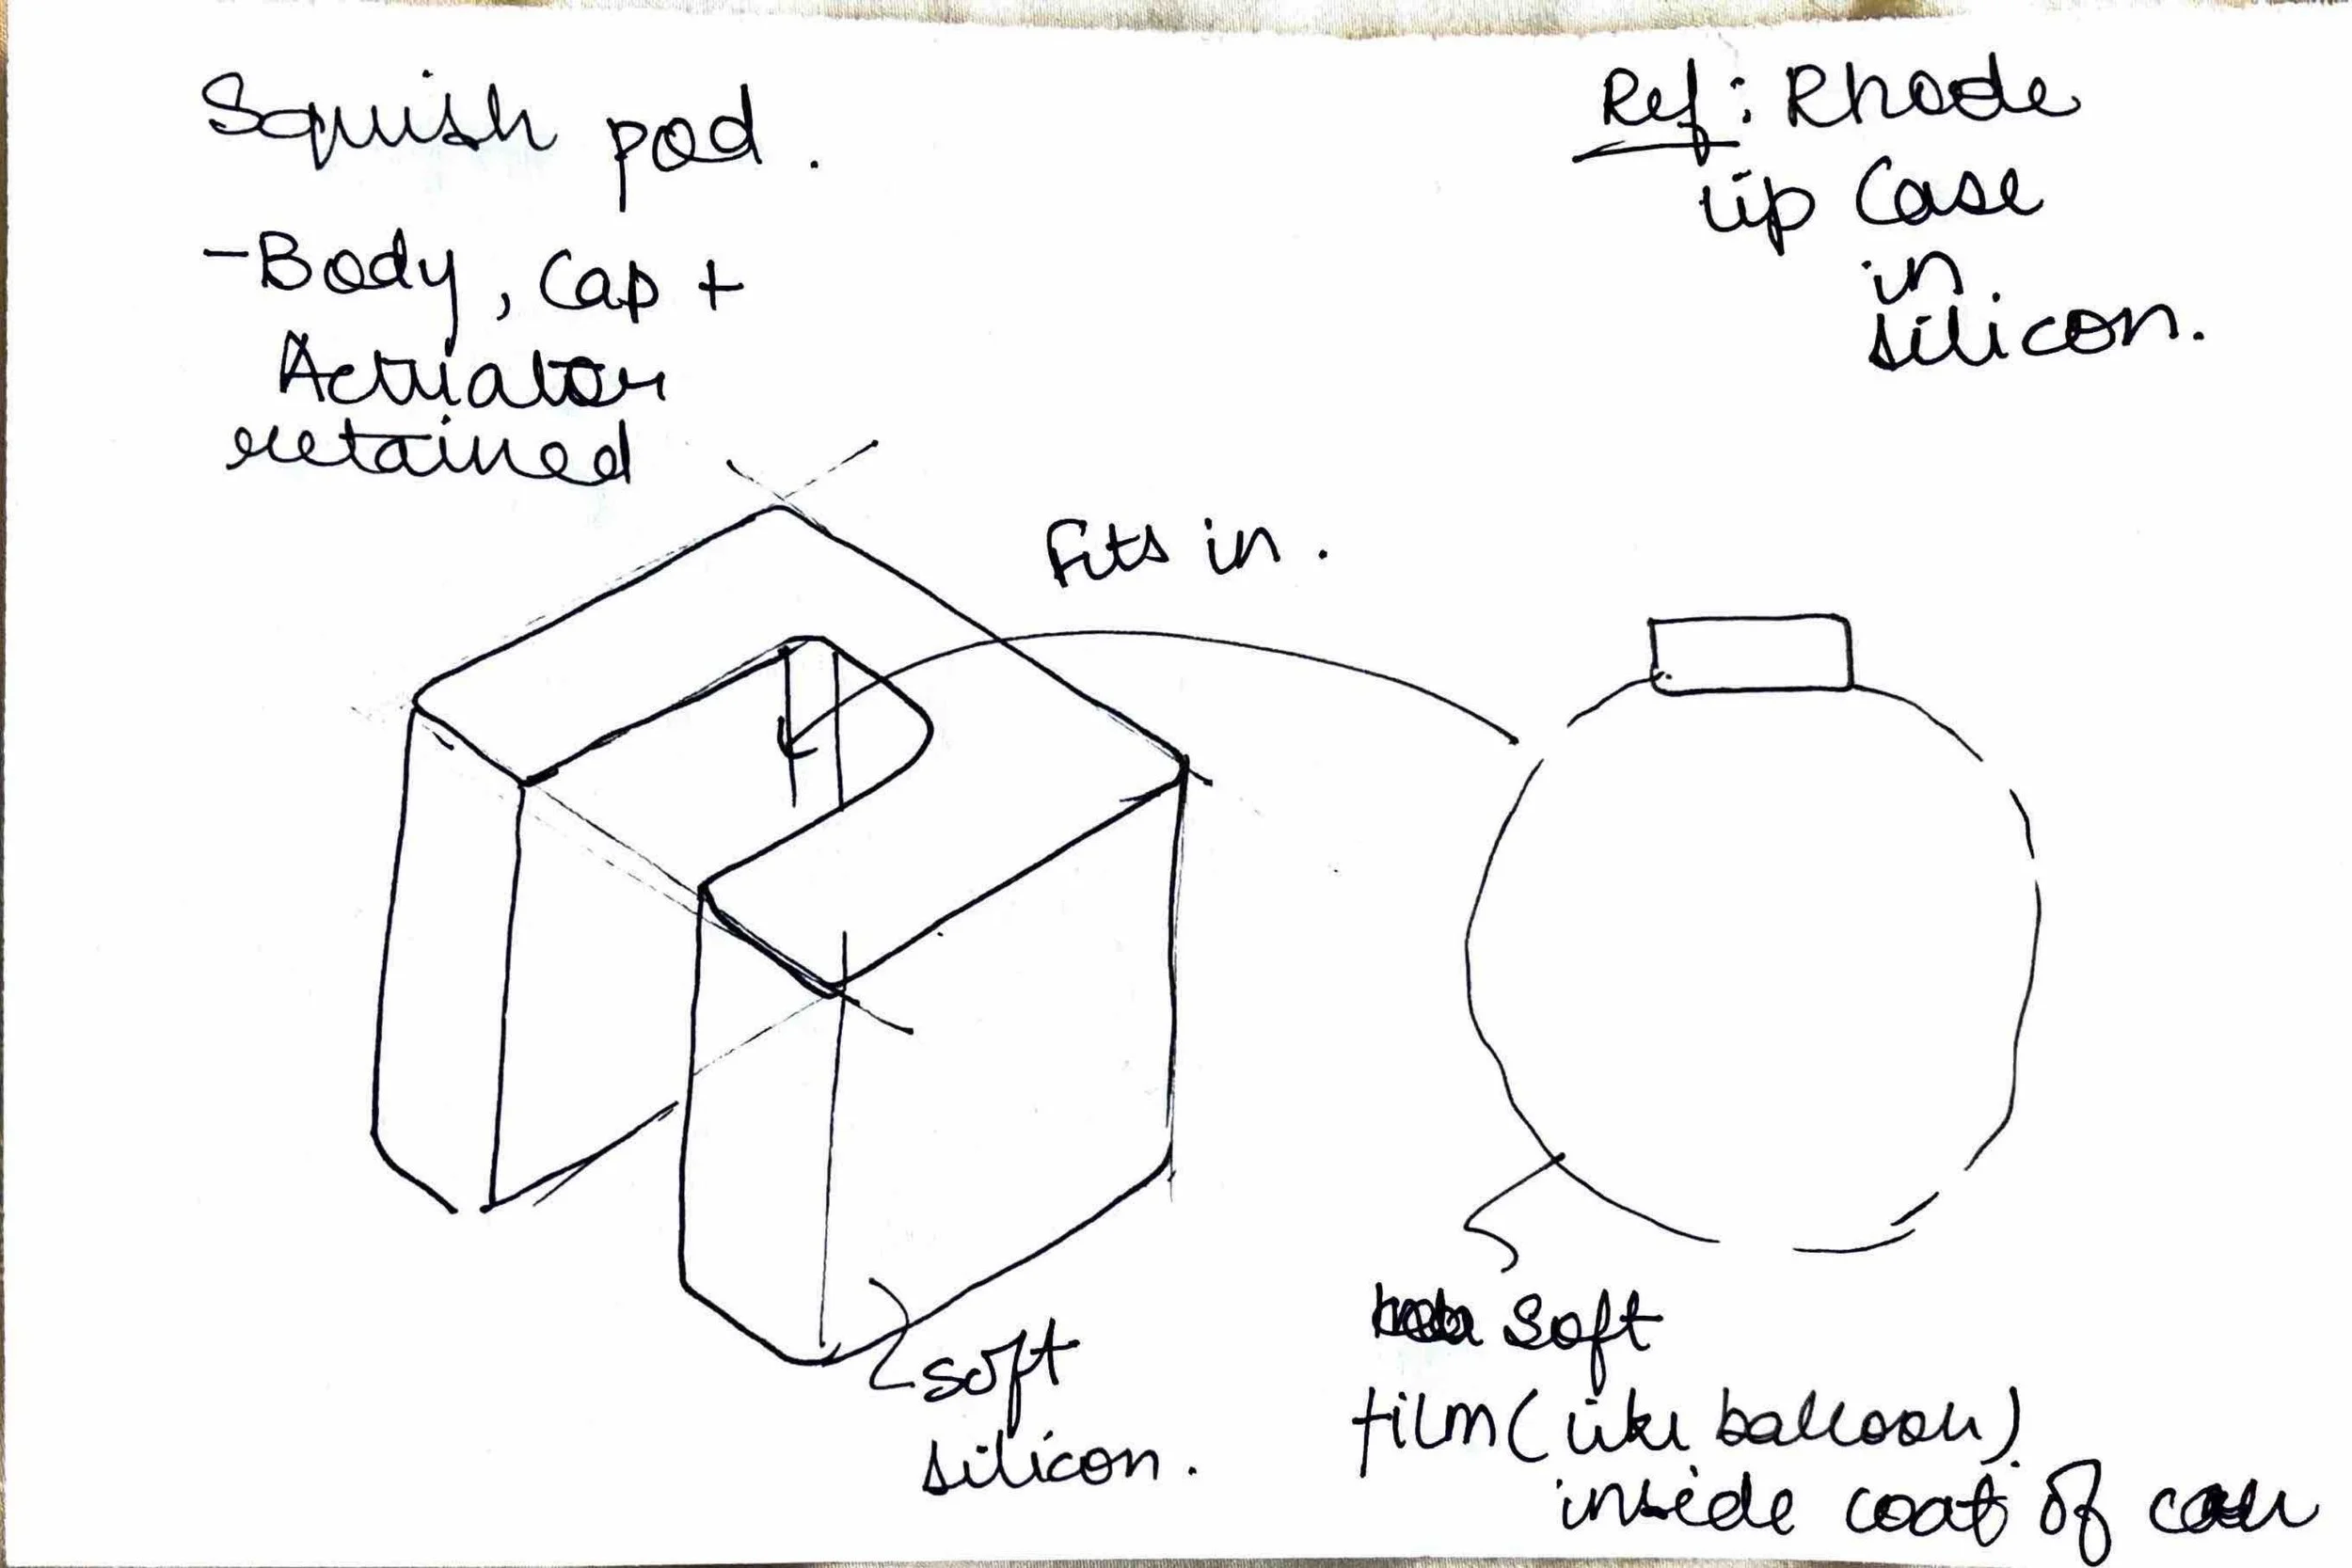 Squish pod.
-Body, Cap +
Actuator
retained
Ref: Rhode
lip Case
in
silicon.
Fits in.
soft
silicon.
soft
film (like balloon)
inside coat of